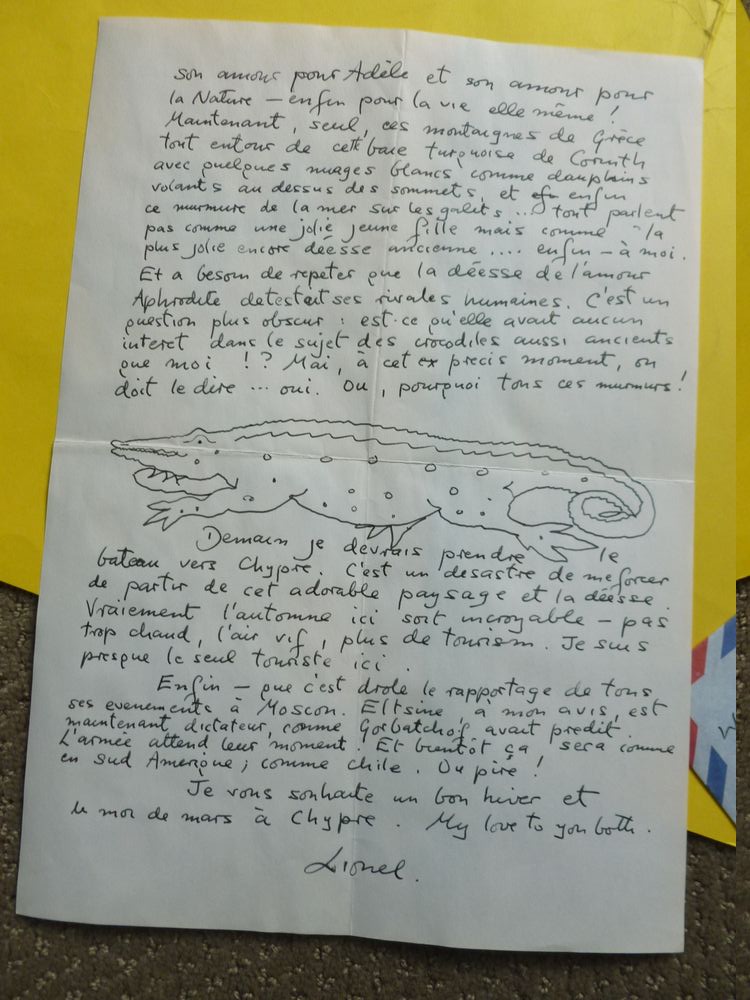 son amour pour Adèle et son amour pour
la Nature — enfin pour la vie elle même !
Maintenant, seul, ces montaignes de Grèce
tout entour de cette baie turquoise de Corinth
avec quelques nuages blancs comme dauphins
volants au dessus des sommets, et enfin
ce murmure de la mer sur les galets ... tout parlent
pas comme une jolie jeune fille mais comme la
plus jolie encore déesse ancienne .... enfin — à moi.
Et a besoin de repeter que la déesse de l'amour
Aphrodite detestait ses rivales humaines. C'est un
question plus obscur : est-ce qu'elle avait aucun
interet dans le sujet des crocodiles aussi ancients
que moi !? Mai, à cet precis moment, on
doit le dire ... oui. Ou, pourquoi tous ces murmurs!
Demain je devrais prendre le
bateau vers Chypre. C'est un desastre de me forcer
de partir de cet adorable paysage et la déesse.
Vraiement l'automne ici soit incroyable — pas
trop chaud, l'air vif, plus de tourism. Je suis
presque le seul touriste ici.
Enfin — que c'est drole le rapportage de tous
ses evenements à Moscou. Eltsine, à mon avis, est
maintenant dictateur, comme Gorbatchof avait predit.
L'armée attend leur moment. Et bientôt ça sera comme
en sud Amerique; comme Chile. Ou pire !
Je vous souhaite un bon hiver et
le moi de mars à Chypre. My love to you both.
Lionel.